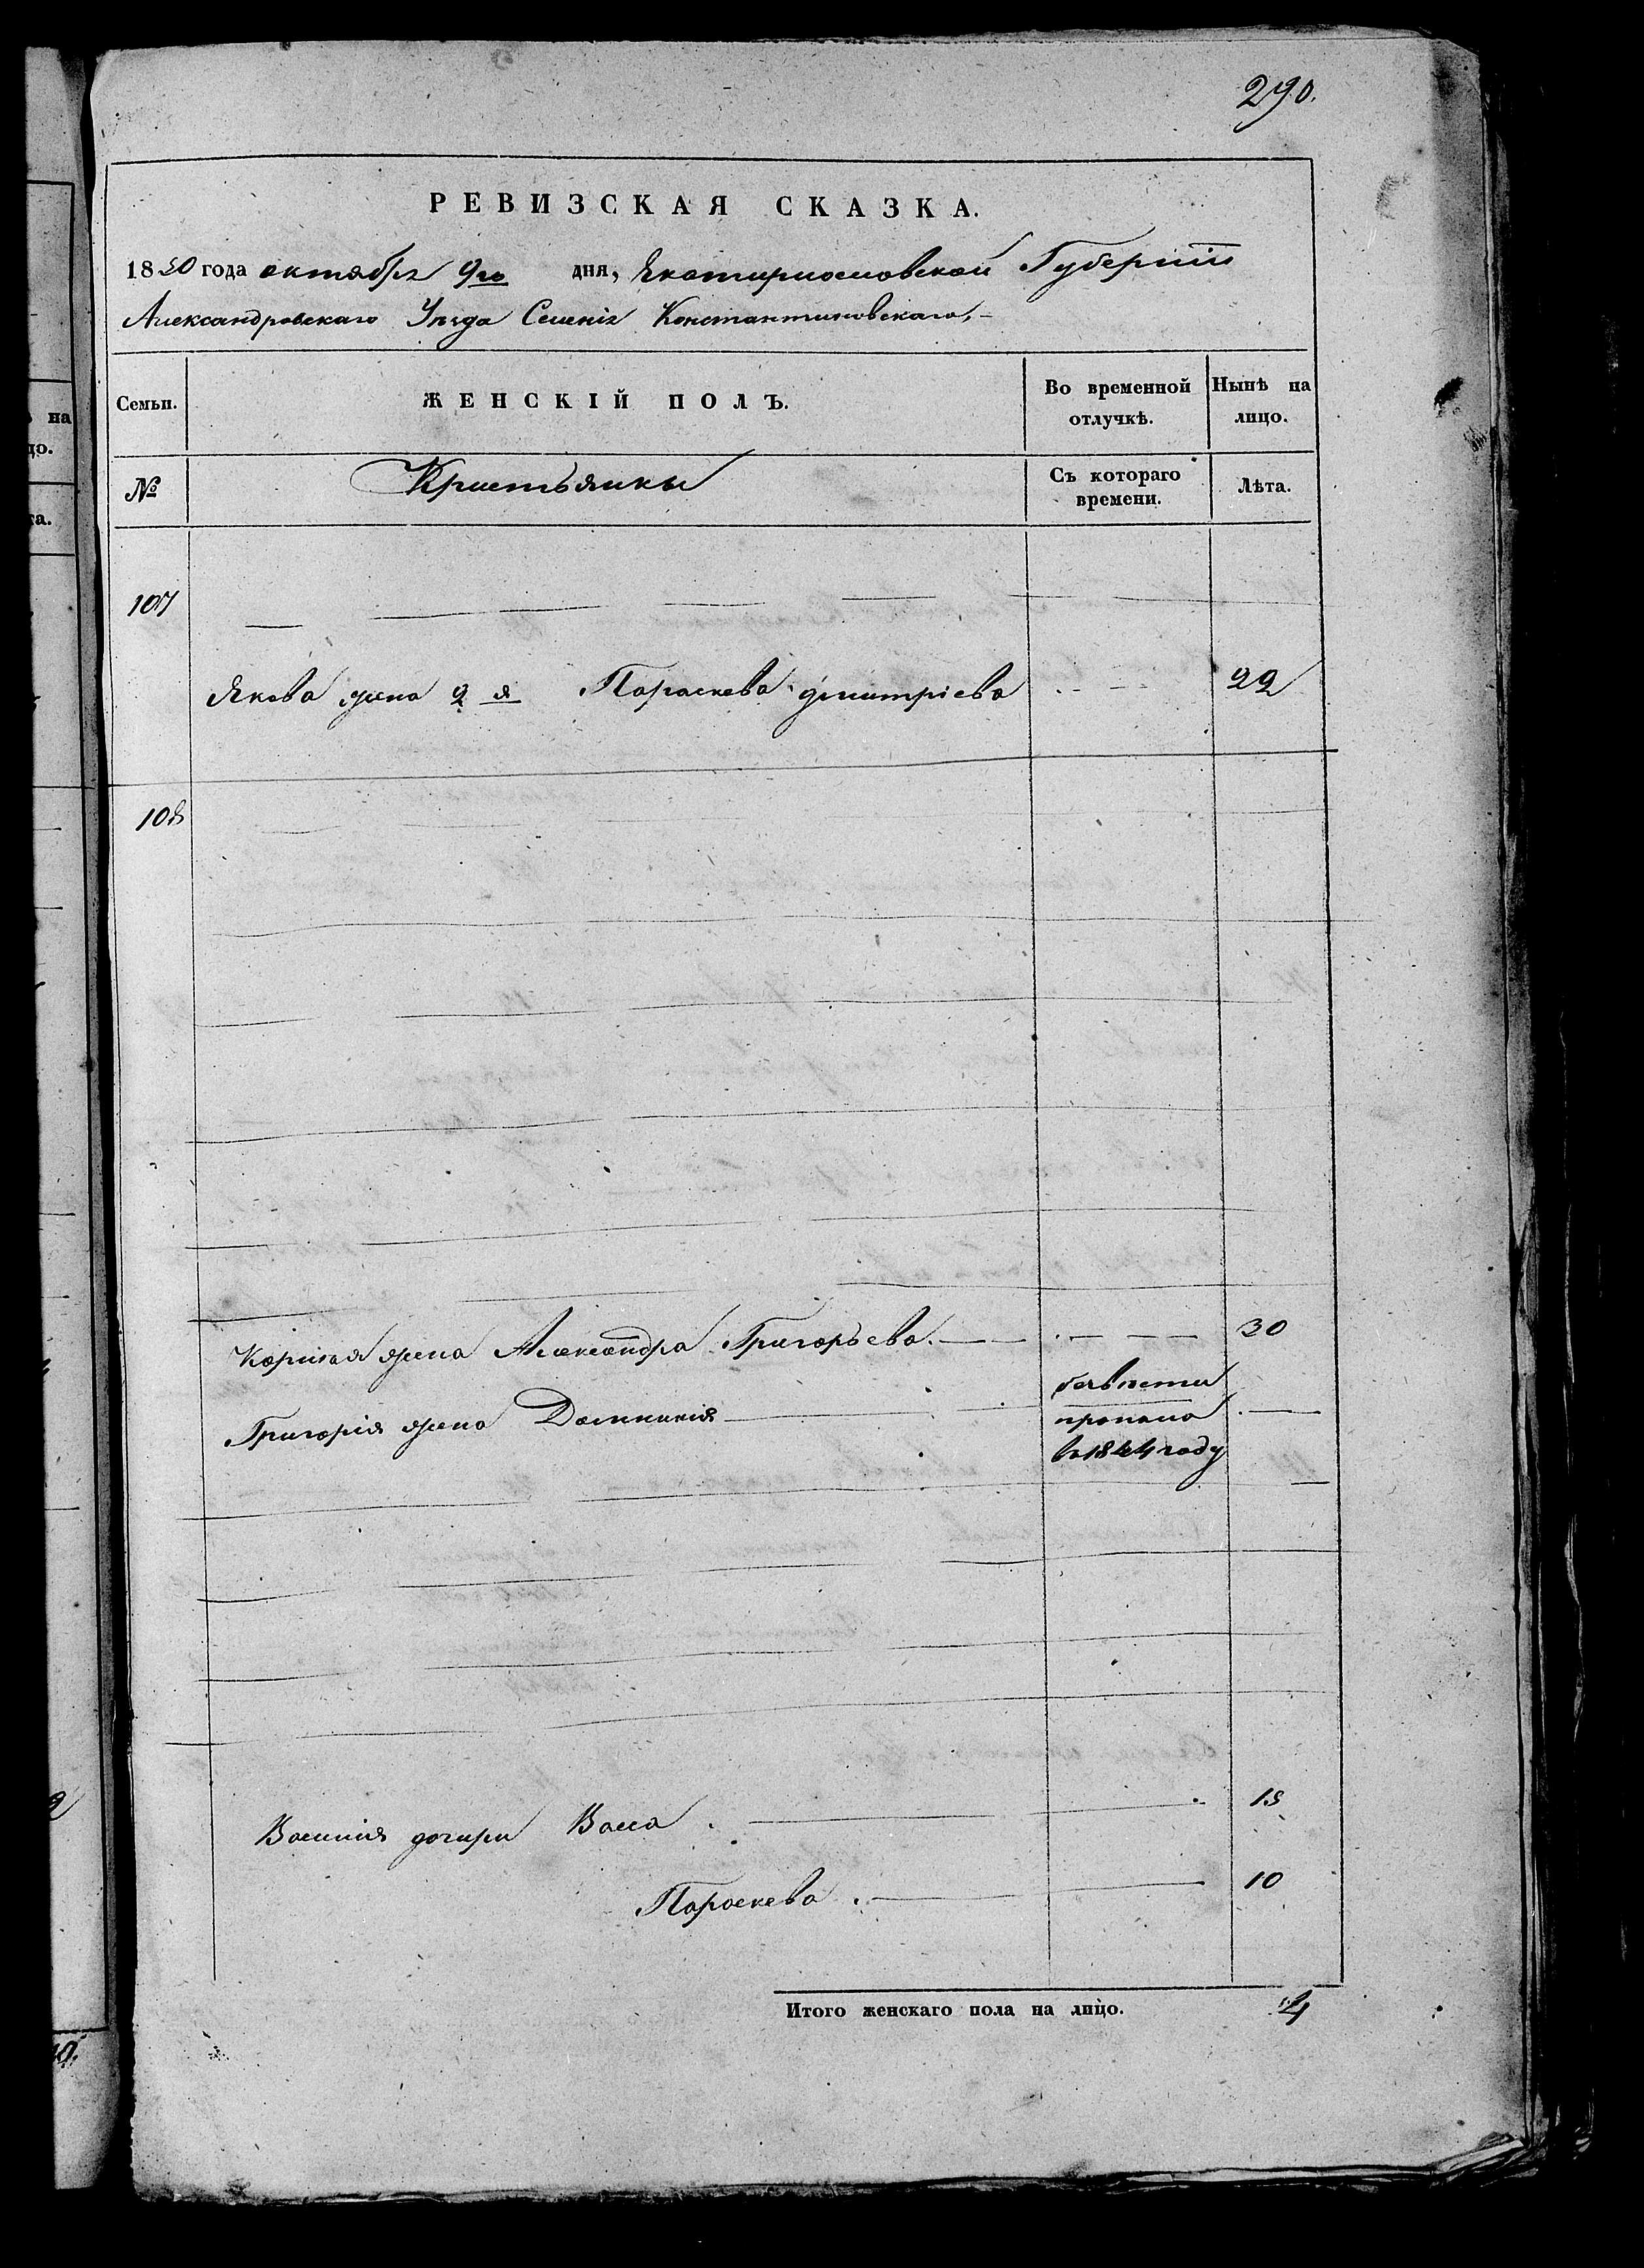 290.
РЕВИЗСКАЯ СКАЗКА.
1850 года октября 9го дня, Екатеринославской Губерніи
Александровскаго Уѣзда Селенія Константиновскаго,-
Семьи. ЖЕНСКІЙ ПОЛЪ. Во временной отлучкѣ. Нынѣ на лицо.
№ Крестьянки Съ котораго времени. Лѣта.
107
Якова жена 2я Параскева Дмитріева 22
108
Корнилія жена Александра Григорьева. 30
Григорія жена Домникія безвѣсти
пропала
въ 1844 году
Василія дочери Васса 15
Параскева 10
Итого женскаго пола на лицо. 4
на
цо.
та.